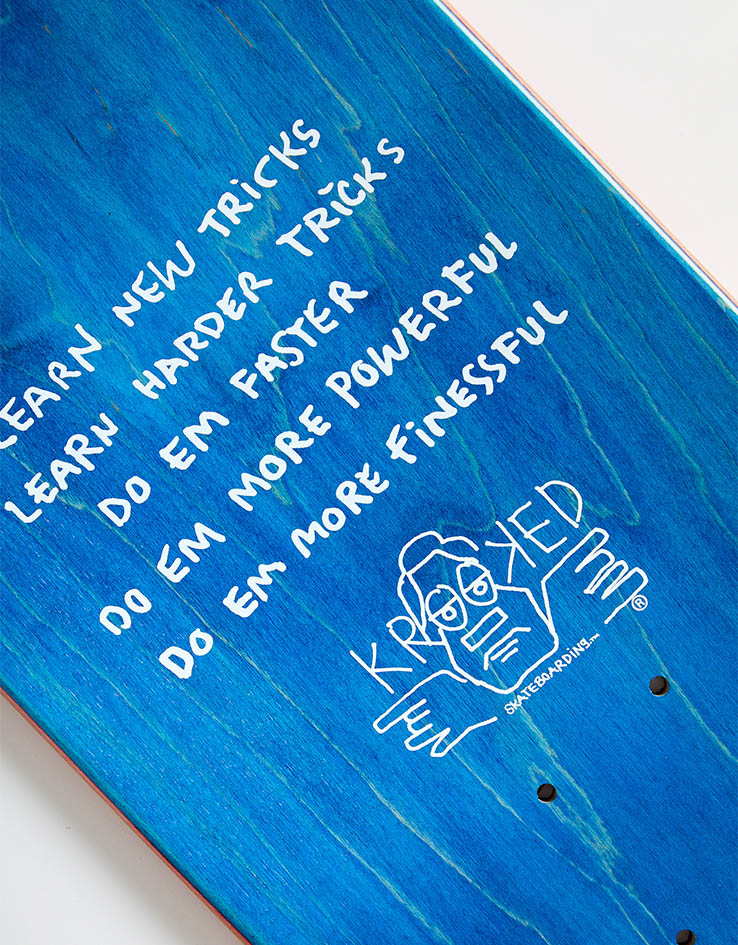 LEARN NEW TRiCKS
LEARN HARDER TRiCKS
DO EM FASTER
DO EM MORE POWERFUL
DO EM MORE FiNESSFUL
KROOKED
SKATEBOARDING.™
®